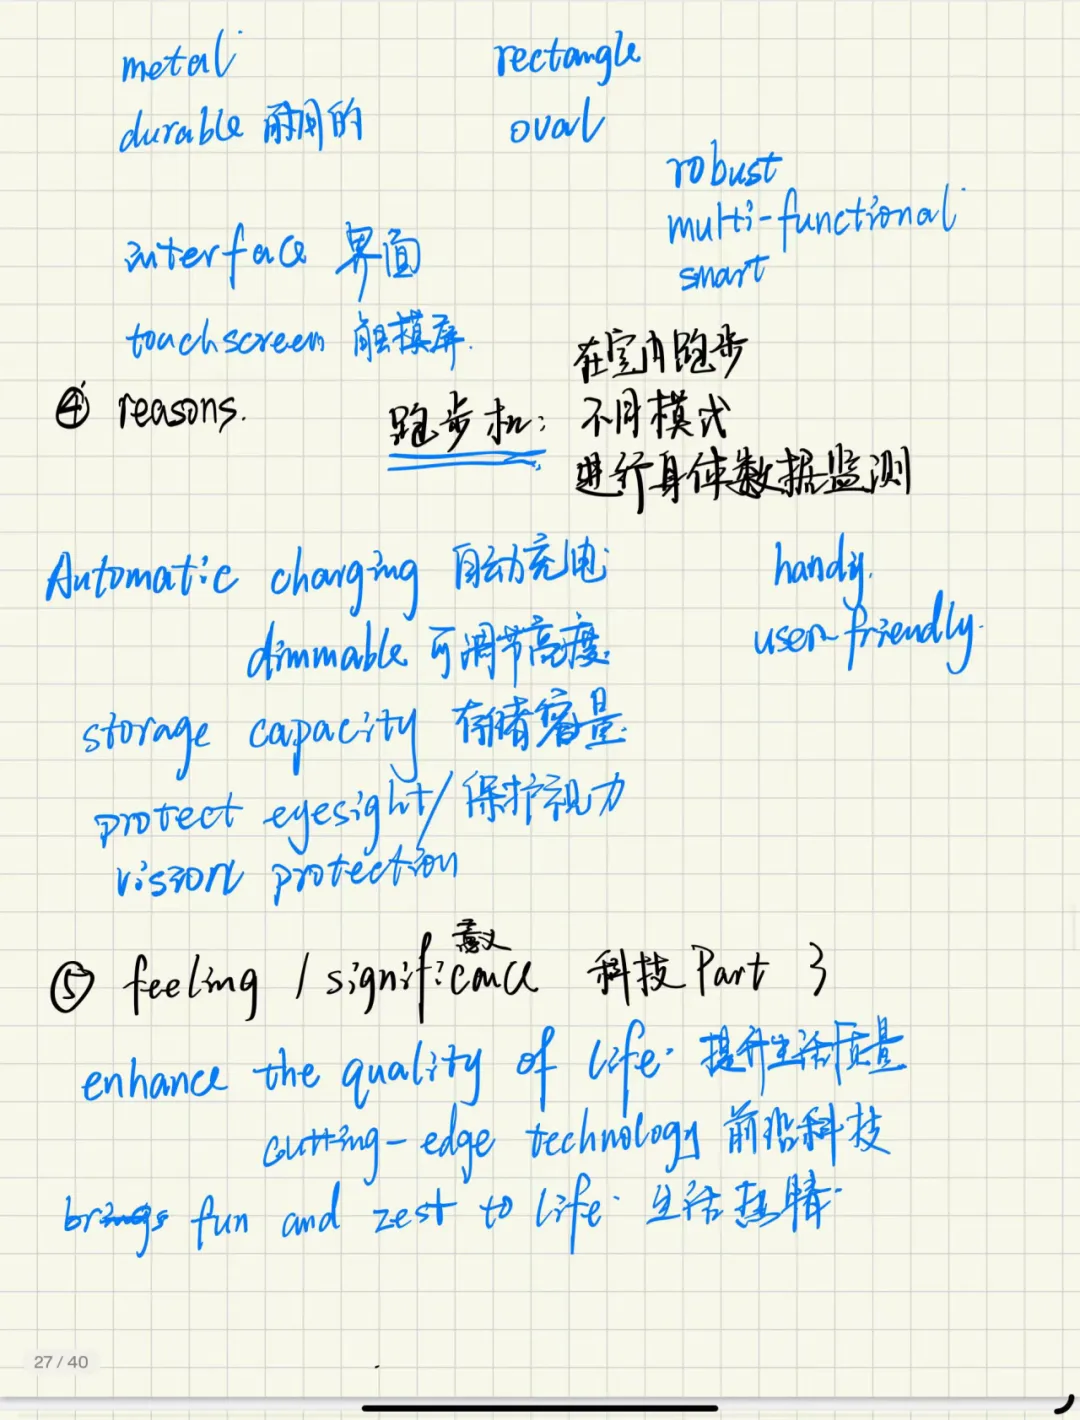 metal
rectangle
durable 耐用的
oval
robust
multi-functional
smart
interface 界面
touchscreen 触摸屏.
④ reasons.
跑步机:
在室内跑步
不同模式
进行身体数据监测
Automatic charging 自动充电
handy.
user-friendly.
dimmable 可调节高度
storage capacity 存储容量
protect eyesight/保护视力
vision protection
⑤ feeling / significance 意义 科技Part 3
enhance the quality of life. 提升生活质量
cutting-edge technology 前沿科技
brings fun and zest to life. 生活热情
27 / 40